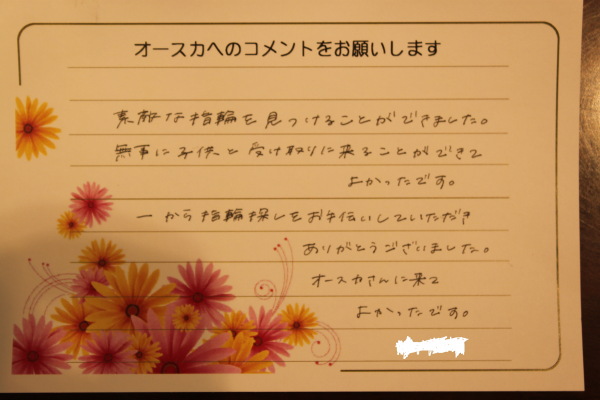 オースカへのコメントをお願いします
素敵な指輪を見つけることができました。
無事に子供と受け取りに来ることができて
よかったです。
一から指輪探しをお手伝いしていただき
ありがとうございました。
オースカさんに来て
よかったです。